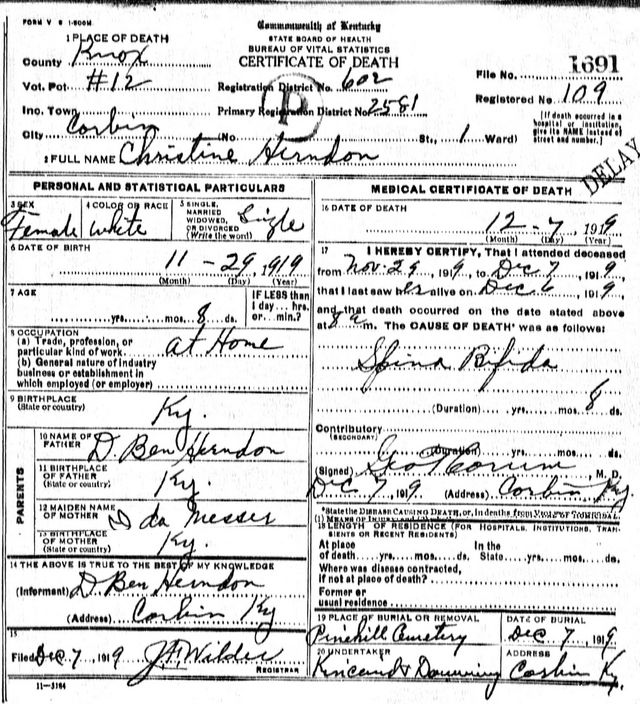 FORM V S 1-500M
Commonwealth of Kentucky
STATE BOARD OF HEALTH
BUREAU OF VITAL STATISTICS
CERTIFICATE OF DEATH
1 PLACE OF DEATH
County Knox
Vot. Pct #12
Registration District No. 602
File No. 1691
Inc. Town
Primary Registration District No. 2581
Registered No 109
P
City Corbin (No St., 1 Ward)
[If death occurred in a hospital or institution, give its NAME instead of street and number.]
2 FULL NAME Christine Herndon
DELAY
PERSONAL AND STATISTICAL PARTICULARS
3 SEX Female
4 COLOR OR RACE White
5 SINGLE, MARRIED WIDOWED, OR DIVORCED (Write the word) Single
6 DATE OF BIRTH
11 - 29, 1919
(Month) (Day) (Year)
7 AGE
yrs. mos. 8 ds.
IF LESS than 1 day... hrs. or... min.?
8 OCCUPATION
(a) Trade, profession, or particular kind of work At Home
(b) General nature of industry business or establishment in which employed (or employer)
9 BIRTHPLACE
(State or country) Ky.
PARENTS
10 NAME OF FATHER D. Ben Herndon
11 BIRTHPLACE OF FATHER
(State or country) Ky.
12 MAIDEN NAME OF MOTHER Ida Messer
13 BIRTHPLACE OF MOTHER
(State or country) Ky.
14 THE ABOVE IS TRUE TO THE BEST OF MY KNOWLEDGE
(Informant) D. Ben Herndon
(Address) Corbin Ky
15
Filed Dec 7, 1919 J F Wilder
REGISTRAR
11-3184
MEDICAL CERTIFICATE OF DEATH
16 DATE OF DEATH
12 - 7, 1919
(Month) (Day) (Year)
17 I HEREBY CERTIFY, That I attended deceased
from Nov. 29, 1919, to Dec 7, 1919,
that I last saw her alive on Dec 6, 1919,
and that death occurred on the date stated above
at 8 a m. The CAUSE OF DEATH* was as follows:
Spina Bifida
(Duration) yrs. mos. 8 ds.
Contributory
(SECONDARY)
(Duration) yrs. mos. ds.
(Signed) Geo M. D.
Dec 7, 1919 (Address) Corbin Ky
*State the DISEASE CAUSING DEATH, or, in deaths from VIOLENT
(1) MEANS OF INJURY and
18 LENGTH OF RESIDENCE (FOR HOSPITALS, INSTITUTIONS, TRANSIENTS OR RECENT RESIDENTS)
At place of death yrs. mos. ds. In the State yrs. mos. ds.
Where was disease contracted,
if not at place of death?
Former or
usual residence
19 PLACE OF BURIAL OR REMOVAL Pinehill Cemetery
DATE OF BURIAL Dec 7 1919
20 UNDERTAKER Kincaid & Downing
ADDRESS Corbin Ky.